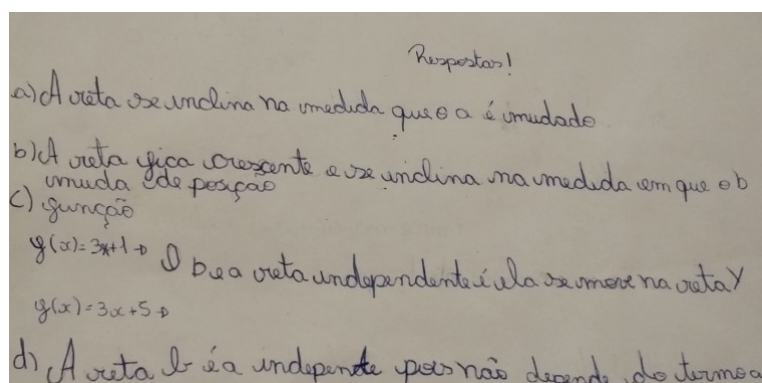 Respostas!
a) A reta se inclina na medida que o a é mudado
b) A reta fica crescente e se inclina na medida em que o b
muda de posição
c) função
f(x)=3x+1→ O b e a reta independente é ela se move na reta Y
f(x)=3x+5→
d) A reta b é a indepente pois não depende do termo a